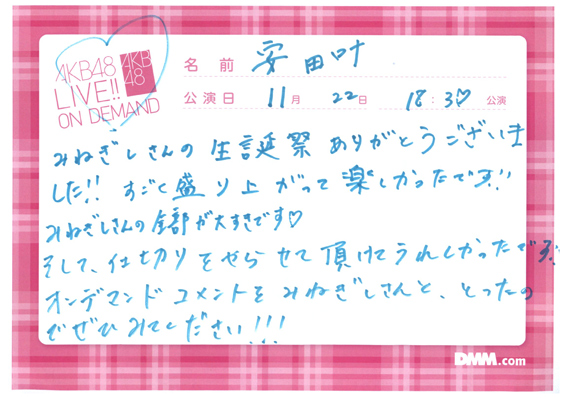 AKB48
LIVE!!
ON DEMAND
AKB
48
名前 安田叶
公演日 11月 22日 18:30公演
みねぎしさんの生誕祭ありがとうございま
した!! すごく盛り上がって楽しかったです!!
みねぎしさんの全部が大すきです♡
そして、仕切りをやらせて頂けてうれしかったです!!
オンデマンドコメントをみねぎしさんと、とったの
でぜひみてください!!!
DMM.com